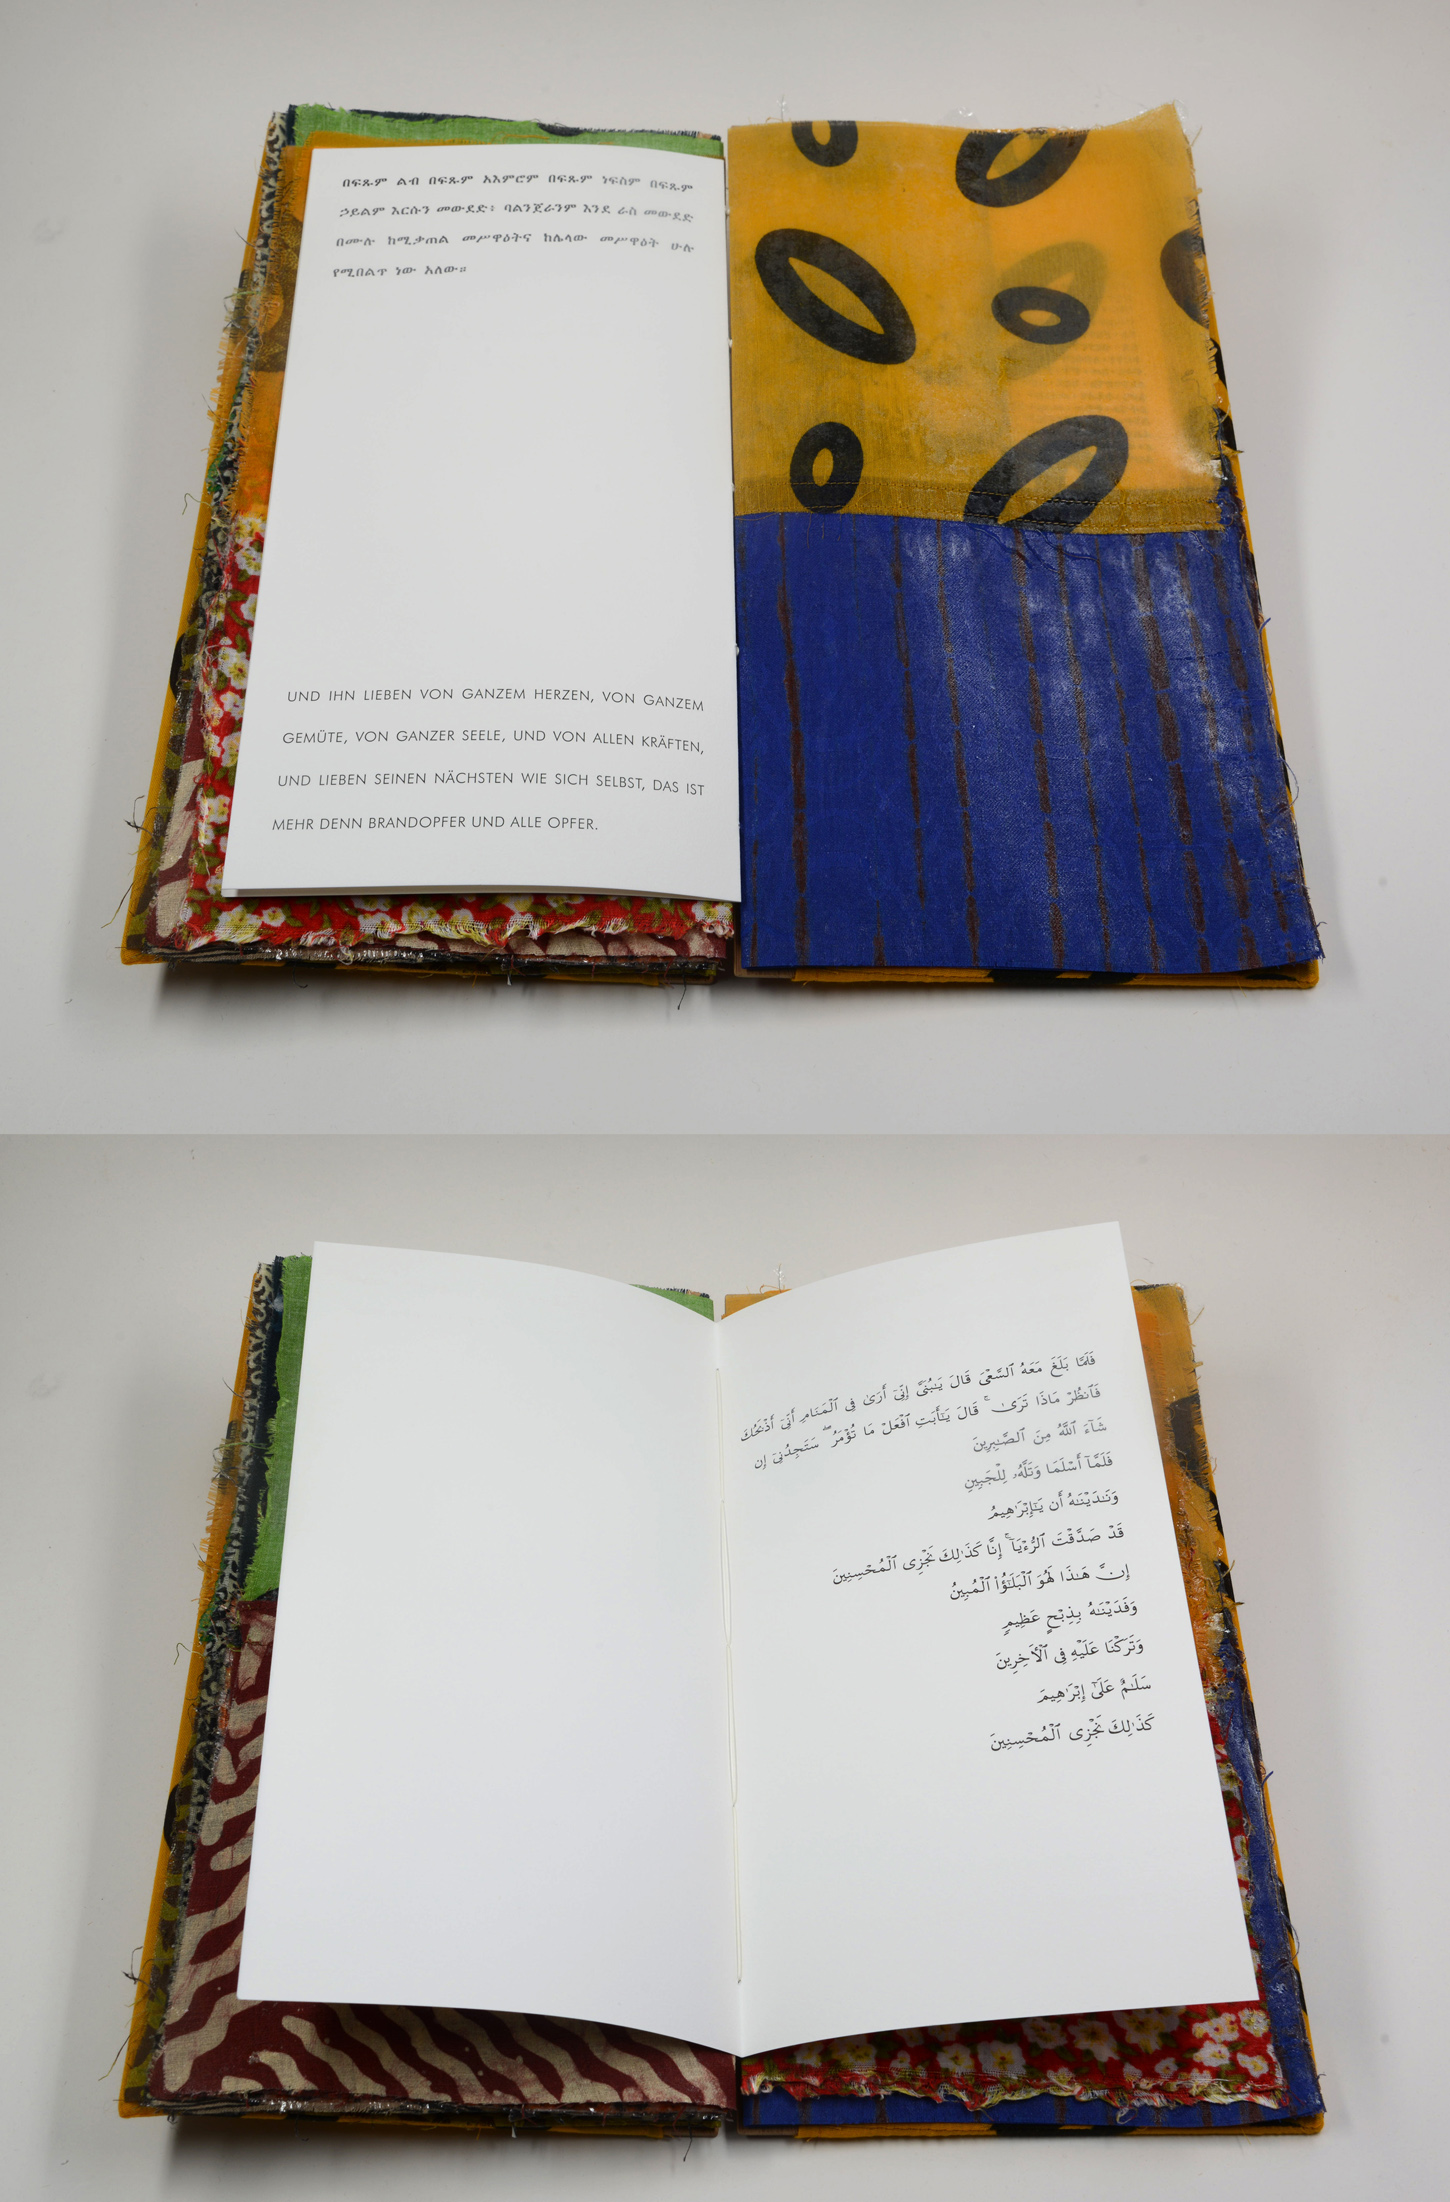 በፍጹም ልብ በፍጹም አእምሮም በፍጹም ነፍስም በፍጹም
ኃይልም እርሱን መውደድ፣ ባልንጀራንም እንደ ራስ መውደድ
በሙሉ ከሚቃጠል መሥዋዕትና ከሌላው መሥዋዕት ሁሉ
የሚበልጥ ነው አለው።
UND IHN LIEBEN VON GANZEM HERZEN, VON GANZEM
GEMÜTE, VON GANZER SEELE, UND VON ALLEN KRÄFTEN,
UND LIEBEN SEINEN NÄCHSTEN WIE SICH SELBST, DAS IST
MEHR DENN BRANDOPFER UND ALLE OPFER.
فَلَمَّا بَلَغَ مَعَهُ ٱلسَّعْىَ قَالَ يَـٰبُنَىَّ إِنِّىٓ أَرَىٰ فِى ٱلْمَنَامِ أَنِّىٓ أَذْبَحُكَ
فَٱنظُرْ مَاذَا تَرَىٰ ۚ قَالَ يَـٰٓأَبَتِ ٱفْعَلْ مَا تُؤْمَرُ ۖ سَتَجِدُنِىٓ إِن
شَآءَ ٱللَّهُ مِنَ ٱلصَّـٰبِرِينَ
فَلَمَّآ أَسْلَمَا وَتَلَّهُۥ لِلْجَبِينِ
وَنَـٰدَيْنَـٰهُ أَن يَـٰٓإِبْرَٰهِيمُ
قَدْ صَدَّقْتَ ٱلرُّءْيَآ ۚ إِنَّا كَذَٰلِكَ نَجْزِى ٱلْمُحْسِنِينَ
إِنَّ هَـٰذَا لَهُوَ ٱلْبَلَـٰٓؤُا۟ ٱلْمُبِينُ
وَفَدَيْنَـٰهُ بِذِبْحٍ عَظِيمٍ
وَتَرَكْنَا عَلَيْهِ فِى ٱلْـَٔاخِرِينَ
سَلَـٰمٌ عَلَىٰٓ إِبْرَٰهِيمَ
كَذَٰلِكَ نَجْزِى ٱلْمُحْسِنِينَ